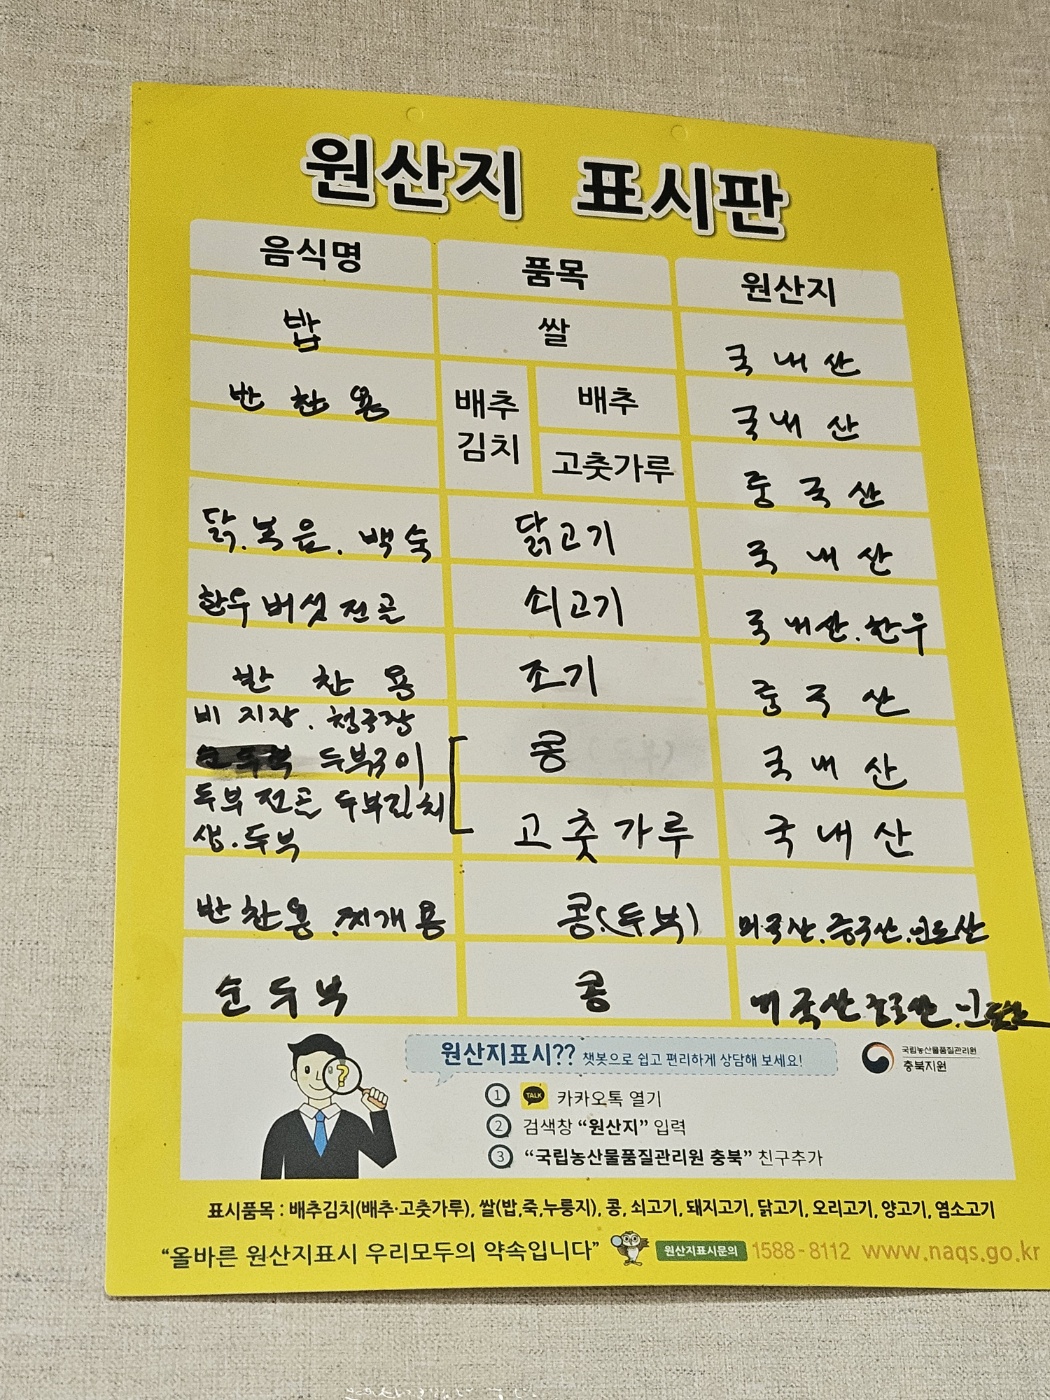 원산지 표시판
음식명 품목 원산지
밥 쌀 국내산
반찬용 배추김치 배추 국내산
고춧가루 중국산
닭.볶음.백숙 닭고기 국내산
한우버섯전골 쇠고기 국내산.한우
반찬용 조기 중국산
비지장.청국장
두부구이 콩 국내산
두부전골 두부김치
생.두부 고춧가루 국내산
반찬용.찌개용 콩.(두부) 미국산.중국산.인도산
순두부 콩 미국산 중국산.
원산지표시?? 챗봇으로 쉽고 편리하게 상담해 보세요!
국립농산물품질관리원
충북지원
① TALK 카카오톡 열기
② 검색창 “원산지” 입력
③ “국립농산물품질관리원 충북” 친구추가
표시품목 : 배추김치(배추·고춧가루), 쌀(밥,죽,누룽지), 콩, 쇠고기, 돼지고기, 닭고기, 오리고기, 양고기, 염소고기
“올바른 원산지표시 우리모두의 약속입니다” 원산지표시문의 1588-8112 www.naqs.go.kr